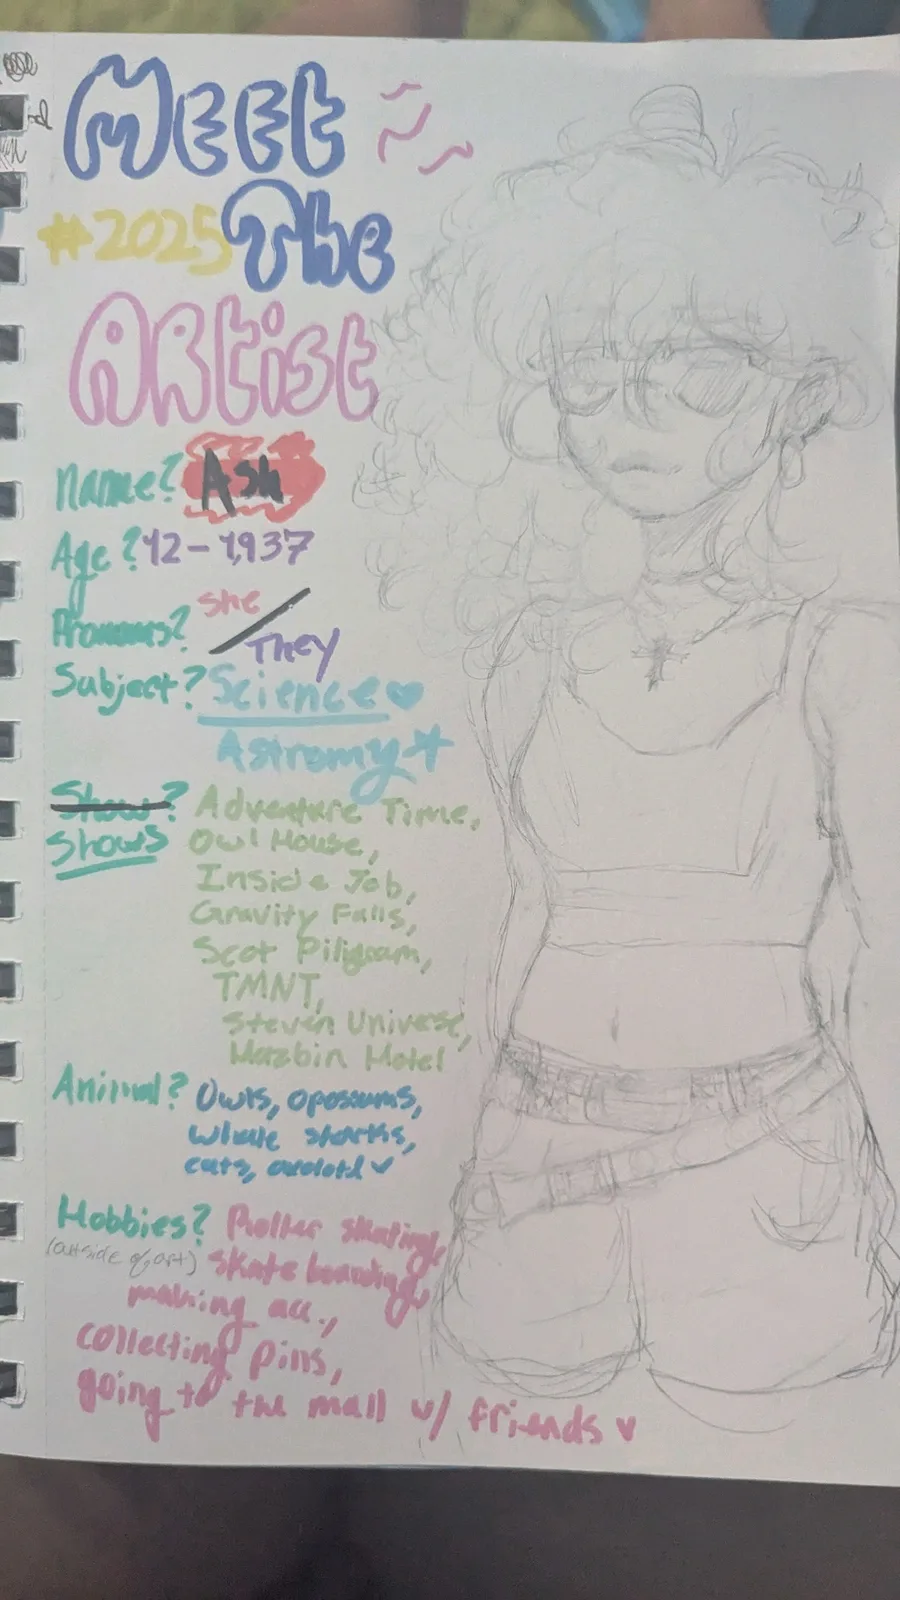 MEEt
#2025 The
ARtist
Name? Ash
Age? 12-1,937
Pronouns? She/They
Subject? Science
Astromy
Show?
Shows
Adventure Time,
Owl House,
Inside Job,
Gravity Falls,
Scot Piligram,
TMNT,
Steven Universe,
Hazbin Hotel
Animal? Owls, oposoums,
whale sharks,
cats, axolotl
Hobbies? Roller skating,
(outside of art) skateboarding,
making acc.,
collecting pins,
going to the mall w/ friends